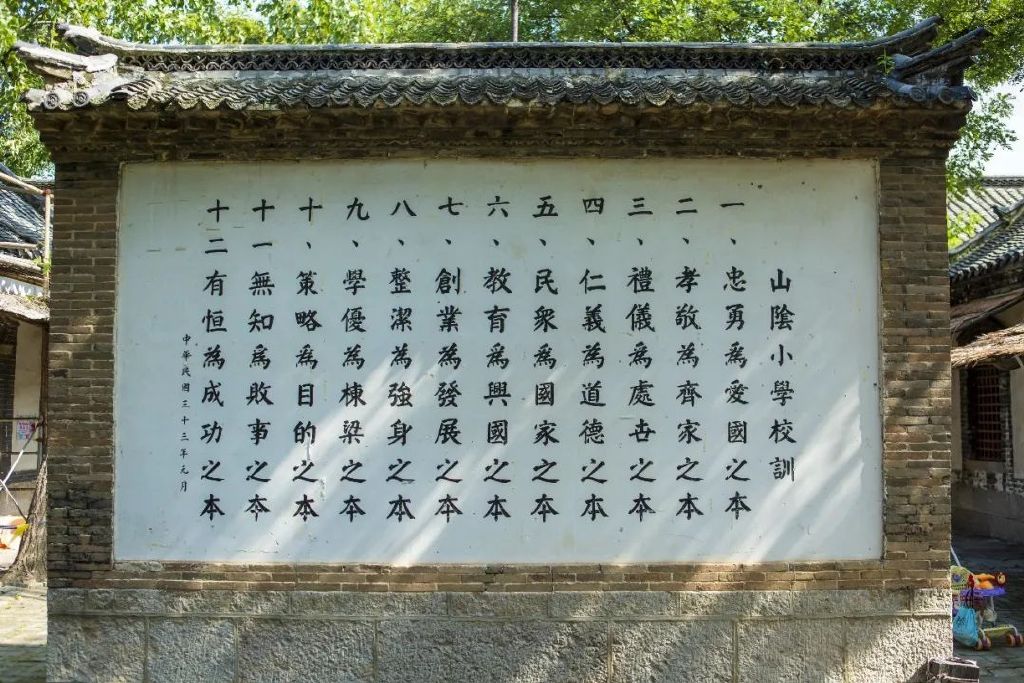 山陰小學校訓
一、忠勇為愛國之本
二、孝敬為齊家之本
三、禮儀為處世之本
四、仁義為道德之本
五、民衆為國家之本
六、教育為興國之本
七、創業為發展之本
八、整潔為強身之本
九、學優為棟梁之本
十、策略為目的之本
十一無知為敗事之本
十二有恒為成功之本
中華民國三十三年元月